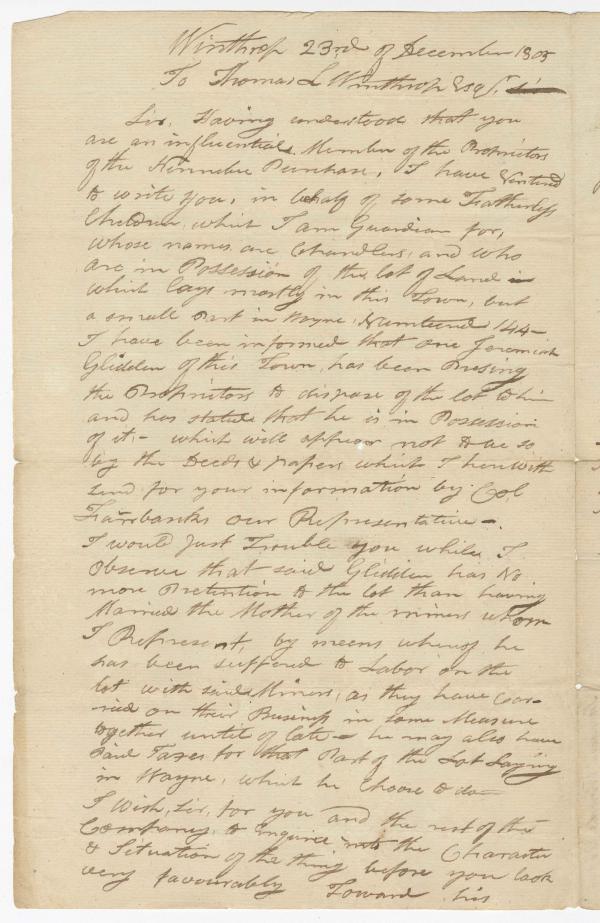 Winthrop 23rd of December 1805
To Thomas L Winthrop Esqr.
Sir, Having understood that you
are an influential Member of the Proprietors
of the Kennebec Purchase, I have Ventured
to write you, in behalf of some Fatherless
Children, which I am Guardian for,
whose names are Chandlers, and who
are in Possession of the lot of Land
which lays mostly in this Town, but
a small Part in Wayne, Numbered 144 -
I have been informed that one Jeremiah
Glidden of this Town, has been Presing
the Proprietors to dispose of the lot to him
and has stated that he is in Possession
of it, - which will appear not to be so
by the Deeds & papers which I herewith
send for your information by Col
Fairbanks our Representative -.
I would just Trouble you while I
observe that said Glidden has No
more Pretention to the lot than having
Married the Mother of the minors whom
I Represent, by means whereof he
has been suffered to Labor on the
lot with said Minors, as they have Car-
ried on their Business in some Measure
together until of late - he may also have
Paid Taxes for that Part of the Lot Laying
in Wayne, which he Choose to do -
I Wish, Sir, for you and the rest of the
Company, to enquire into the Character
& Situation of the thing before you look
very favourably Toward his